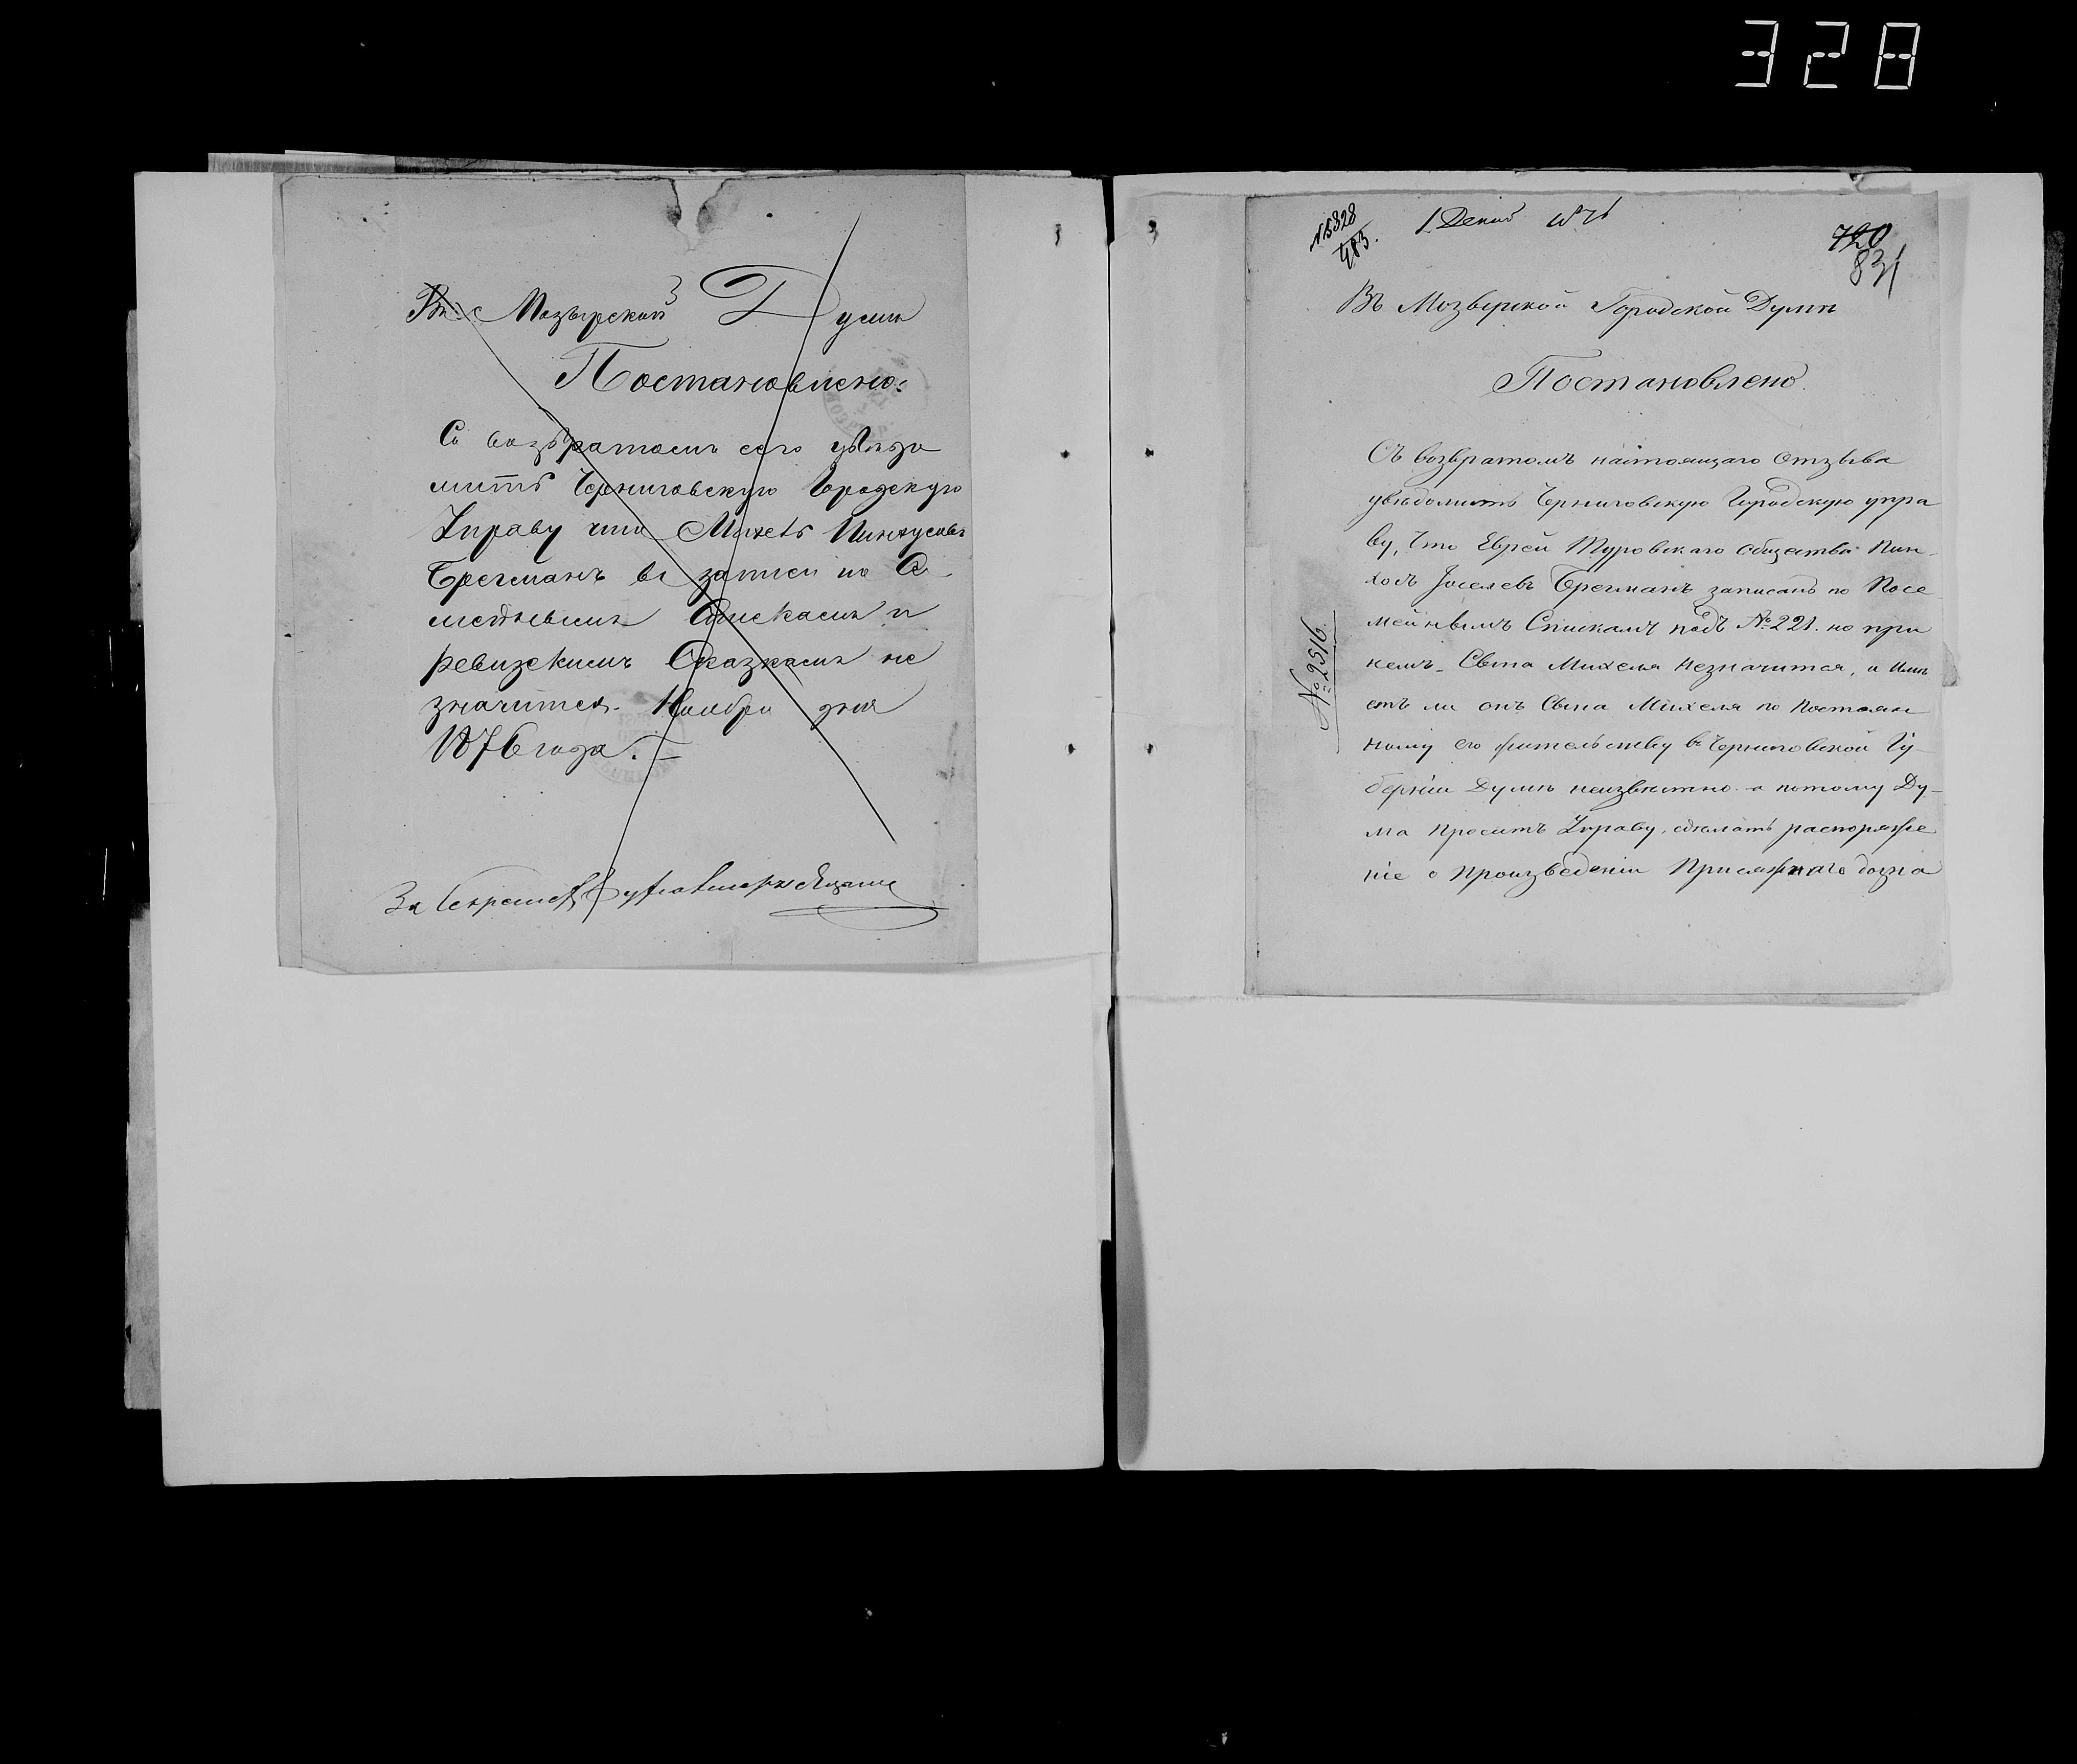 328
Въ Мозырской Думѣ
Постановлено:
Съ возвратомъ сего увѣдо
мить Черниговскую Городскую
Управу что Михель Пинхусовъ
Брегманъ въ записи по Се
мейнымъ Спискамъ и
ревизскимъ Сказкамъ не
значится. Ноября дня
1876 года.
За Секретаря
№5828
483.
1 Декаб 1876
720
831
Въ Мозырской Городской Думѣ
Постановлено.
Съ возвратомъ настоящаго отзыва
увѣдомить Черниговскую Городскую упра
ву, что Еврей Туровскаго общества Пин-
хосъ Іоселевъ Брегманъ записанъ по Посе
мейнымъ Спискамъ подъ №221. но при
немъ Сына Михеля незначится, и имѣ
етъ ли онъ Сына Михеля по Постоян
ному его жительству въ Черниговской Гу-
берніи Думѣ неизвѣстно а потому Ду-
ма проситъ Управу, сдѣлать распоряже
ніе о произведеніи Присяжнаго дозна
№2516